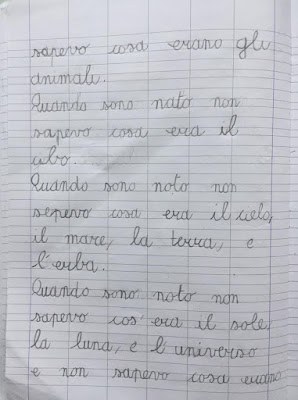 sapevo cosa erano gli
animali.
Quando sono nato non
sapevo cosa era il
cibo.
Quando sono noto non
sepevo cosa era il cielo,
il mare, la terra, e
l'erba.
Quando sono noto non
sapevo cos'era il sole,
la luna, e l'universo
e non sapevo cosa erano